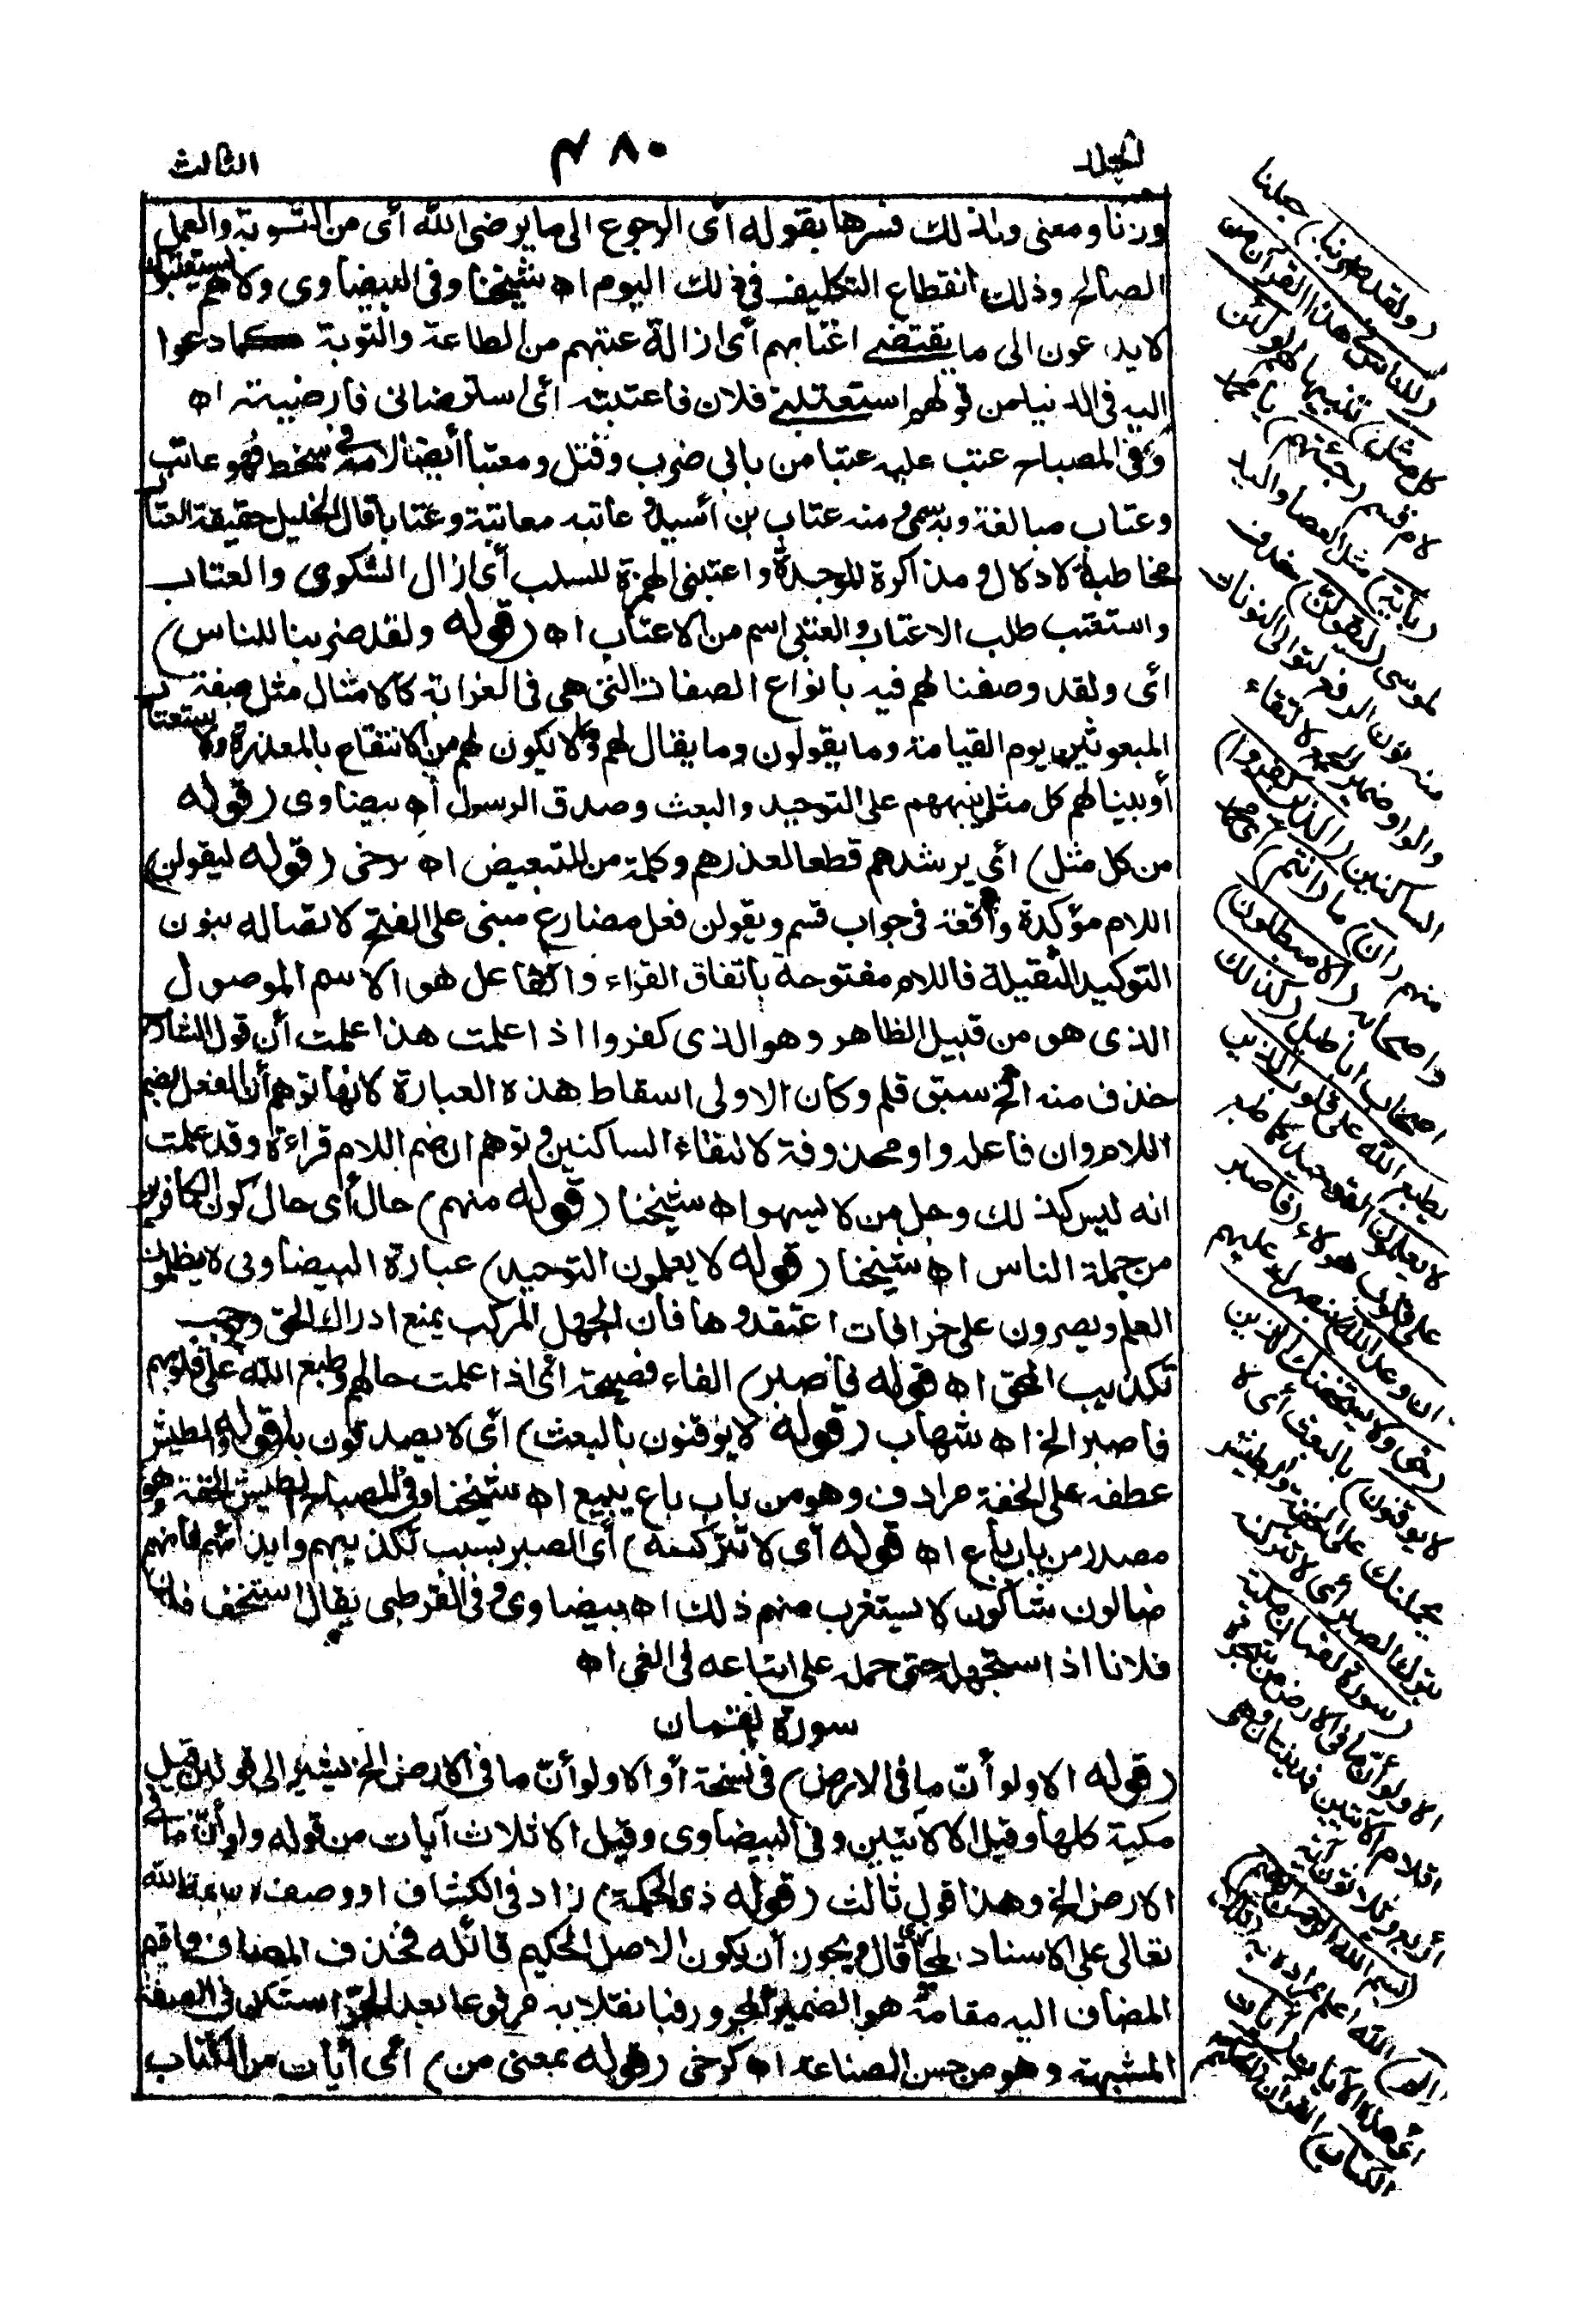 المجلد
٤٨٠
الثالث
وزنا ومعنى ولذلك فسرها بقوله أى الرجوع الى ما يرضى الله أى من التوبة والعمل
الصالح وذلك لانقطاع التكليف فى ذلك اليوم اه شيخنا وفى البيضاوى ولاهم يستعتبون
لا يدعون الى ما يقتضى اعتابهم أى ازالة عتبهم من الطاعة والتوبة كما دعوا
اليه فى الدنيا من قولهم استعتبنى فلان فاعتبته أى استرضانى فارضيته اه
وفى المصباح عتب عليه عتبا من بابى ضرب وقتل ومعتبا أيضا لامه فى سخط فهو عاتب
وعتاب مبالغة وبه سمى ومنه عتاب بن أسيد وعاتبه معاتبة وعتابا قال الخليل حقيقة العتاب
مخاطبة الادلال ومذاكرة الموجدة واعتبنى الهمزة للسلب أى ازال الشكوى والعتاب
واستعتب طلب الاعتاب والعتبى اسم من الاعتاب اه (قوله ولقد ضربنا للناس)
أى ولقد وصفنا لهم فيه بانواع الصفات التى هى فى الغرابة كالامثال مثل صفة
المبعوثين يوم القيامة وما يقولون وما يقال لهم وما لا يكون لهم من الانتفاع بالمعذرة ولا استعتاب
أو بينا لهم كل مثل ينبههم على التوحيد والبعث وصدق الرسول اه بيضاوى (قوله
من كل مثل) أى يرشدهم قطعا لعذرهم وكلمة من للتبعيض اه كرخى (قوله ليقولن)
اللام مؤكدة واقعة فى جواب قسم ويقولن فعل مضارع مبنى على الفتح لاتصاله بنون
التوكيد الثقيلة فاللام مفتوحة باتفاق القراء والفاعل هو الاسم الموصول
الذى هو من قبيل الظاهر وهو الذى كفروا اذا علمت هذا علمت أن قول الشارح
حذف منه الخ سبق قلم وكان الاولى اسقاط هذه العبارة لانها توهم أن الفعل بضم
اللام وان فاعله واو محذوفة لالتقاء الساكنين وتوهم ان ضم اللام قراءة وقد علمت
انه ليس كذلك وجل من لا يسهو اه شيخنا (قوله منهم) حال أى حال كون الكافرين
من جملة الناس اه شيخنا (قوله لا يعلمون التوحيد) عبارة البيضاوى لا يطلبون
العلم ويصرون على خرافات اعتقدوها فان الجهل المركب يمنع ادراك الحق ويوجب
تكذيب المحق اه (قوله فاصبر) الفاء فصيحة أى اذا علمت حالهم وطبع الله على قلوبهم
فاصبر الخ اه شهاب (قوله لا يوقنون بالبعث) أى لا يصدقون به (قوله والطيش
عطفه على الخفة مرادف وهو من باب باع يبيع اه شيخنا وفى المصباح الطيش الخفة وهو
مصدر من باب باع اه (قوله أى لا تتركنه) أى الصبر بسبب تكذيبهم وايذائهم فانهم
ضالون شاكون لا يستغرب منهم ذلك اه بيضاوى وفى القرطبى يقال استخف فلان
فلانا اذا استجهله حتى حمله على اتباعه فى الغى اه
سورة لقمان
(قوله الا ولو أن ما فى الارض) فى نسخة أو الا ولو أن ما فى الارض الخ يشير الى قولين قيل
مكية كلها وقيل الا الآيتين وفى البيضاوى وقيل الا ثلاث آيات من قوله ولو أن ما فى
الارض الخ وهذا قول ثالث (قوله ذى الحكمة) زاد فى الكشاف او وصف بصفة الله
تعالى على الاسناد المجازى قال ويجوز أن يكون الاصل الحكيم قائله فحذف المضاف واقيم
المضاف اليه مقامه وهو الضمير المجرور فبانقلابه مرفوعا بعد الجر استكن فى الصفة
المشبهة وهو من حسن الصناعة اه كرخى (قوله بمعنى من) أى آيات من الكتاب
(ولقد ضربنا) جعلنا
(للناس فى هذا القرآن من
كل مثل) تنبيها لهم (ولئن)
لام قسم (جئتهم) يا محمد
(بآية) مثل العصا واليد
لموسى (ليقولن) حذف
منه نون الرفع لتوالى النونات
والواو ضمير الجمع لالتقاء
الساكنين (الذين كفروا)
منهم (ان) ما (أنتم) أى محمد
واصحابه (الا مبطلون)
اصحاب اباطيل (كذلك
يطبع الله على قلوب الذين
لا يعلمون) التوحيد كما طبع
على قلوب هؤلاء (فاصبر
ان وعد الله) بنصرك عليهم
(حق ولا يستخفنك الذين
لا يوقنون) بالبعث أى لا
يحملنك على الخفة والطيش
بترك الصبر أى لا تتركنه
(سورة لقمان مكية
الا ولو أن ما فى الارض من شجرة
اقلام الآيتين فمدنيتان وهى
أربع وثلاثون آية
(بسم الله الرحمن الرحيم)
(الم) الله اعلم بمراده به (تلك)
أى هذه الآيات (آيات
الكتاب) القرآن (الحكيم)